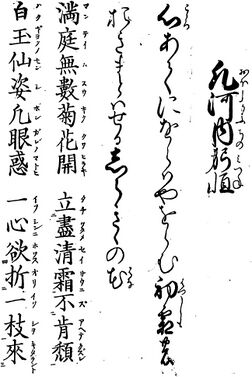 凡河内躬恒
心あてにをらはやをらむ初霜の
おきまとはせる志らきくの花
滿庭無數菊花開　立盡清霜不肯頽
白玉仙姿凡眼惑　一心欲折一枝來